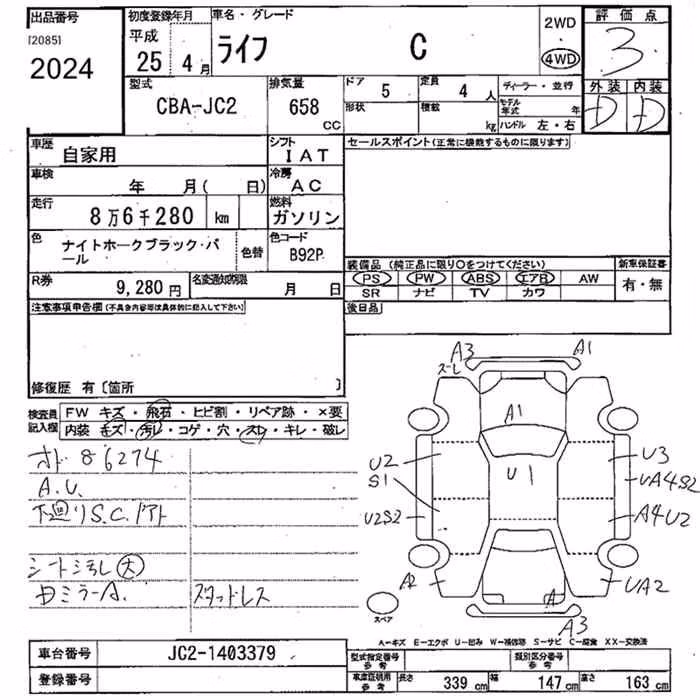 出品番号
[2085]
2024
初度登録年月
平成
25 4月
車名・グレード
ライフ C
2WD
4WD
評価点
3
外装 内装
D D
型式
CBA-JC2
排気量
658
CC
ドア
5
定員
4 人
形状
積載
kg
ディーラー・並行
モデル年式 年
ハンドル 左・右
車歴
自家用
シフト
IAT
セールスポイント(正常に機能するものに限ります)
車検
年 月( 日)
冷房
AC
走行
8万6千280 km
燃料
ガソリン
色
ナイトホークブラック・パール
色替
色コード
B92P
装備品 (純正品に限り○をつけてください)
新車保証書
PS PW ABS エアB AW
有・無
SR ナビ TV カワ
R券
9,280円
名変通知期限
月 日
後日品
注意事項申告欄(不具合内容等は具体的に記入して下さい)
修復歴 有〔箇所 〕
検査員記入欄
FW キズ・飛石・ヒビ割・リペア跡・×要
内装 キズ・汚レ・コゲ・穴・スレ・キレ・破レ
オド 86274
A.U.
下廻りS.C.
シート汚レ 大
スタッドレス
A3
A1
A1
U2
S1
U1
U3
UA4S2
U2S2
A4U2
A2
UA2
A
A3
スペア
A―キズ E―エクボ U―凹み W―補修跡 S―サビ C―腐食 XX―交換済
車台番号
JC2-1403379
登録番号
型式指定番号
参考
類別区分番号
参考
車庫証明用
参考
長さ
339 cm
幅
147 cm
高さ
163 cm